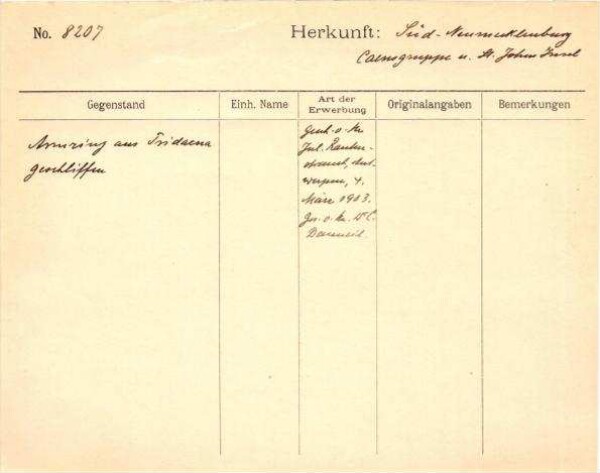 No. 8207
Herkunft: Süd-Neumecklenburg
Caensgruppe u. St. Johns Insel
Gegenstand
Einh. Name
Art der
Erwerbung
Originalangaben
Bemerkungen
Armring aus Tridacna
geschliffen
Gesch. v. Hr.
Jul. Rauten-
strauch, Ant-
werpen, 4.
März 1903.
Ges. v. Hr. Dr. C.